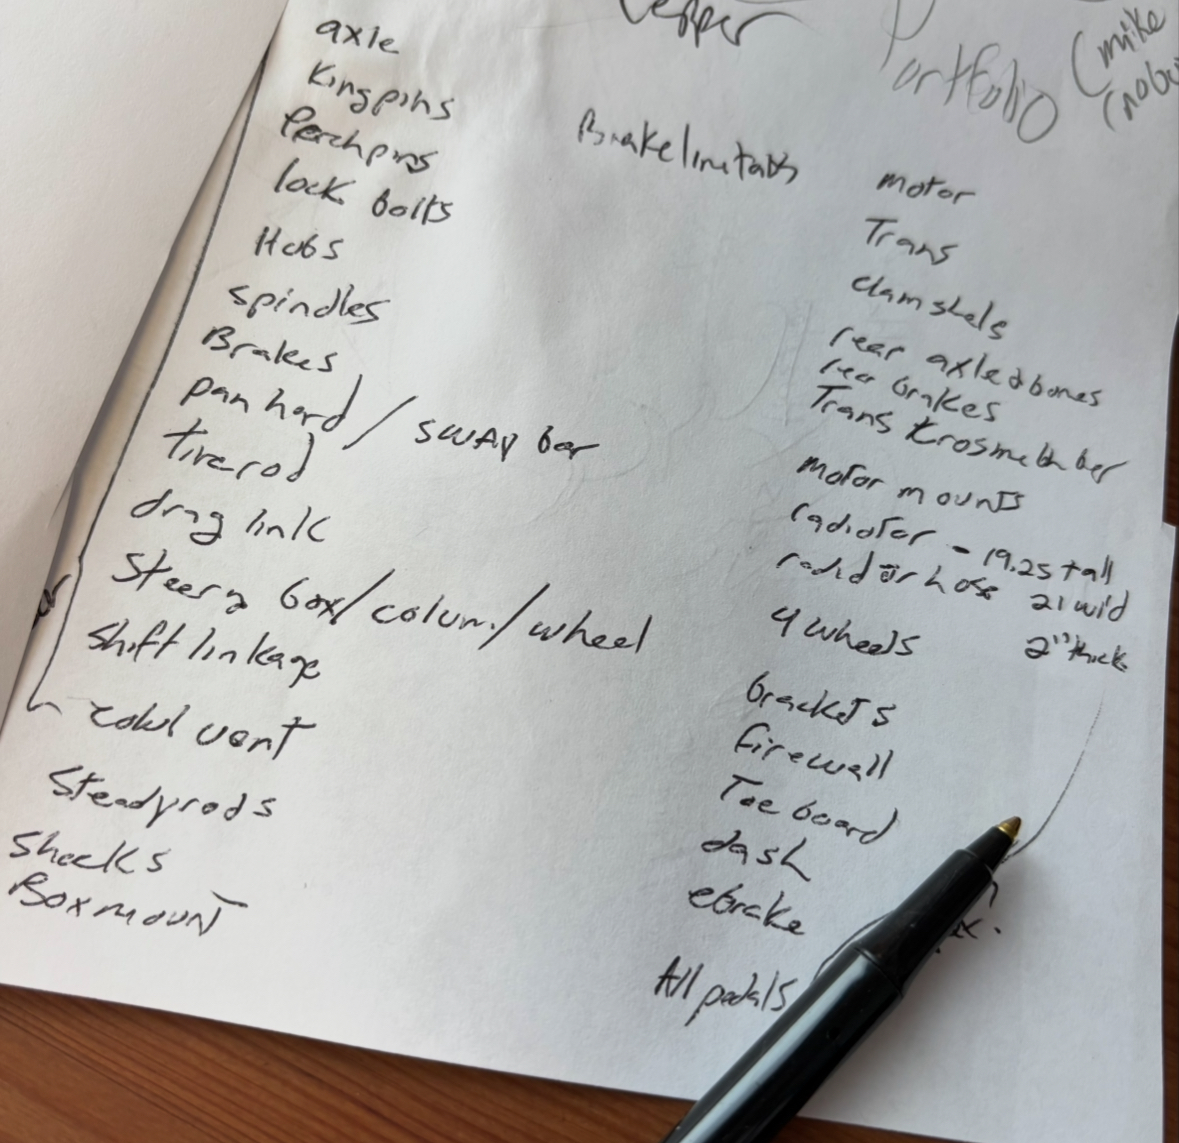 Portfolio (mike
axle
Kingpins
Perchpins
lock bolts
Hubs
spindles
Brakes
panhard / sway bar
tirerod
drag link
steerg box/colum/wheel
shift linkage
cowl vent
steadyrods
shocks
Boxmount
Brakelinetabs
motor
Trans
clamshels
rear axle & bones
rear brakes
Trans krosmember
motor mounts
radiator - 19.25 tall
radiator hose 21 wid
4 wheels 2" thick
brackets
firewall
Toe board
dash
ebrake
All pedals